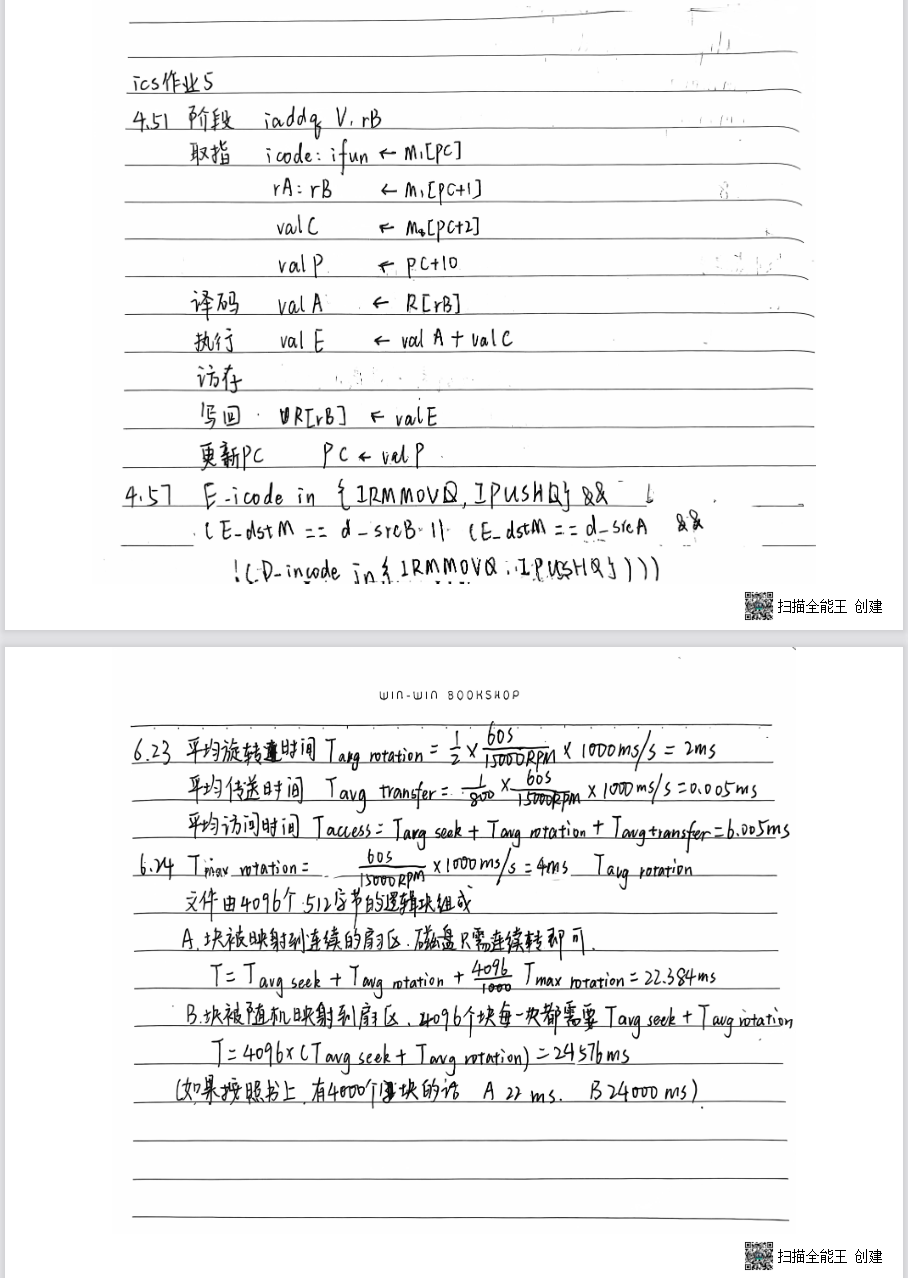 ics作业5
4.51 阶段 iaddq V, rB
取指 icode: ifun ← M₁[PC]
rA: rB ← M₁[PC+1]
valC ← M₈[PC+2]
valP ← PC+10
译码 valA ← R[rB]
执行 valE ← valA + valC
访存
写回 R[rB] ← valE
更新PC PC ← valP
4.57 E-icode in {IRMMOVQ, IPUSHQ} && (
(E-dstM == d-srcB || (E-dstM == d-srcA &&
!(D-incode in{IRMMOVQ, IPUSHQ})))
扫描全能王 创建
WIN-WIN BOOKSHOP
6.23 平均旋转时间 Tavg rotation = 1/2 × 60s/15000RPM × 1000ms/s = 2ms
平均传送时间 Tavg transfer = 1/800 × 60s/15000RPM × 1000ms/s = 0.005ms
平均访问时间 Taccess = Tavg seek + Tavg rotation + Tavg transfer = 6.005ms
6.24 Tmax rotation = 60s/15000RPM × 1000ms/s = 4ms Tavg rotation
文件由4096个512字节的逻辑块组成
A.块被映射到连续的扇区.磁盘只需连续转即可.
T = Tavg seek + Tavg rotation + 4096/1000 Tmax rotation = 22.384ms
B.块被随机映射到扇区.4096个块每一块都需要Tavg seek + Tavg rotation
T = 4096×(Tavg seek + Tavg rotation) = 24576ms
(如果按照书上,有4000个块的话 A 22 ms. B 24000 ms).
扫描全能王 创建